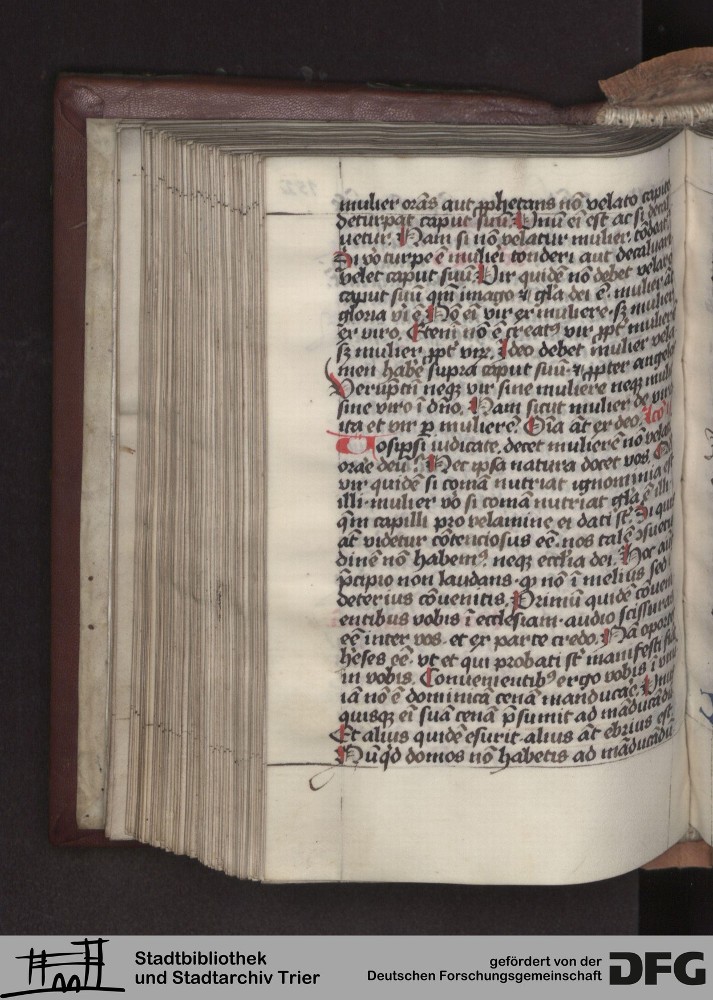 mulier orās aut ꝓphetans nō velato capite
deturpat caput suū. Vnū ei est ac si decal
uetur. Nam si nō velatur mulier. tōdeat͛.
Si v̊o turpe ē mulieī tonderi aut decaluari
velet caput suū. Vir quidē nō debet velare
caput suū qm̄ imago ⁊ gl̄a dei ē. mulier āt
gloria viī ē. Nō ei vir ex muliere. sꝫ mulier
ex viro. Etenī nō ē creatꝰ vir ꝓpt̄ mulierē
sꝫ mulier ꝓpt̄ virꝫ. Ideo debet mulier vela
men habē supra caput suū. ⁊ ꝓpter angelos
Verūptn̄ neqꝫ vir sine muliere neqꝫ muli
sine viro ī dn̄o. Nam sicut mulier de viro
ita et vir ꝑ mulierē. Oīa āt ex deo.
Vosipsi iudicate. decet mulierē nō velat
orare deū. Nec ipsa natura docet vos.
vir quidē si comā nutriat ignominia est
illi. mulier v̊o si comā nutriat gl̄a ē illi.
qm̄ capilli pro velamine ei dati st̄. Si quis
āt videtur cōtenciosus eē. nos talē ꝯsuetu
dinē nō habemꝰ. neqꝫ eccl̄ia dei. Hoc aut
p̄cipio non laudans. qꝫ nō ī melius sed ī
deterius cōuenitis. Primū quidē cōueni
entibus vobis ī ecclesiam. audio scissuras
eē inter vos. et ex parte credo. Nā oportet
h̄eses eē. vt et qui probati st̄ manifesti fiāt
in vobis. Conuenientibꝰ ergo vobis ī vnū
iā nō ē dominicā cenā manducare. Vnus
quisqꝫ ei suā cenā p̄sumit ad māducādū
Et alius quidē esurit. alius āt ebrius est.
Nūqd domos nō habetis ad māducādū
Stadtbibliothek
und Stadtarchiv Trier
gefördert von der
Deutschen Forschungsgemeinschaft
DFG